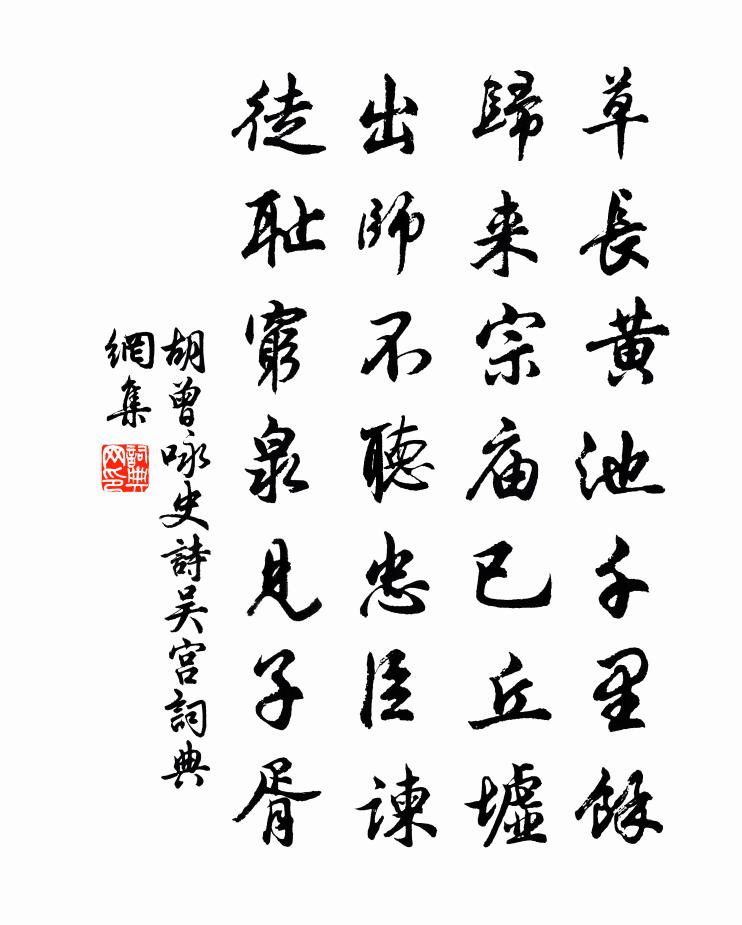 草長黄池千里餘
歸来宗庙已丘墟
出師不聽忠臣諫
徒耻窮泉見子胥
胡曾咏史詩吴宫詞典
網集
詞典
网印